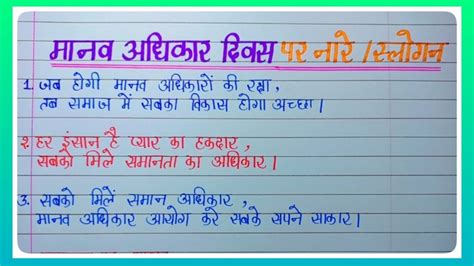 मानव अधिकार दिवस पर नारे / स्लोगन
1. जब होगी मानव अधिकारों की रक्षा,
तब समाज में सबका विकास होगा अच्छा।
2. हर इंसान है प्यार का हकदार,
सबको मिले समानता का अधिकार।
3. सबको मिलें समान अधिकार,
मानव अधिकार आयोग करे सबके सपने साकार।